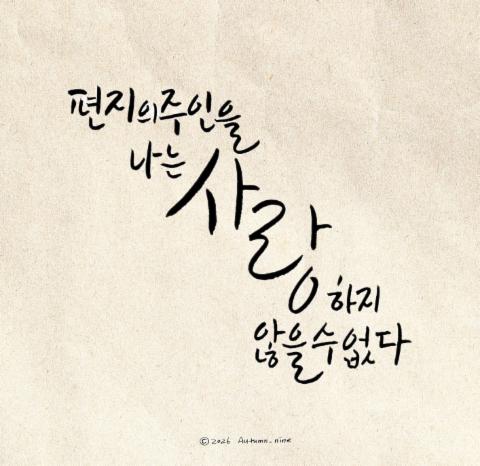 편지의주인을
나는
사랑하지
않을수없다
© 2026 Autumn_nine